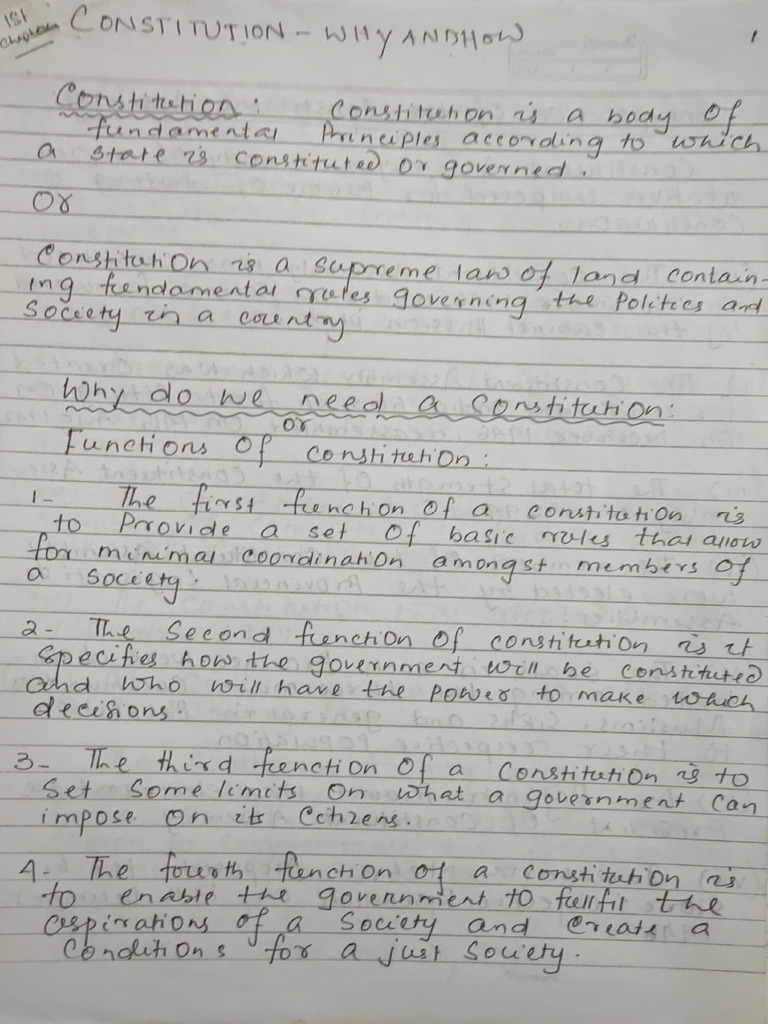 1st chapter CONSTITUTION - WHY AND HOW 1
Constitution: Constitution is a body of
fundamental Principles according to which
a state is constituted or governed.
Or
Constitution is a supreme law of land contain-
ing fundamental rules governing the Politics and
Society in a country
Why do we need a Constitution:
or
Functions of constitution:
1- The first function of a constitution is
to Provide a set of basic rules that allow
for minimal coordination amongst members of
a society.
2- The second function of constitution is it
specifies how the government will be constituted
and who will have the power to make which
decisions.
3- The third function of a constitution is to
set some limits on what a government can
impose on its citizens.
4- The fourth function of a constitution is
to enable the government to fullfil the
aspirations of a society and create a
conditions for a just society.